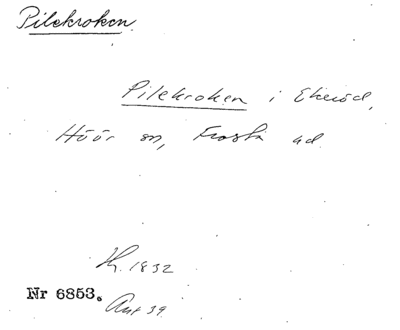 Pilekroken.
Pilekroken i Ekeröd,
Höör sn, Frosta hd
Th. 1832
Nr 6853.
Ant 39